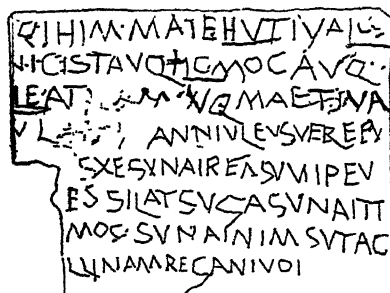 QIHIM·MATEHVTIVALC
NICISTAVQTICMOCAVQ
LEAT M VQ MAETIVA
VL ANNIVLEVSVEREPV
SXESVNAIREASVVIPEV
ESSILATSVGASVNAITI
MOC·SVNAINIMSVTAC
LLINAMREGANIVOI